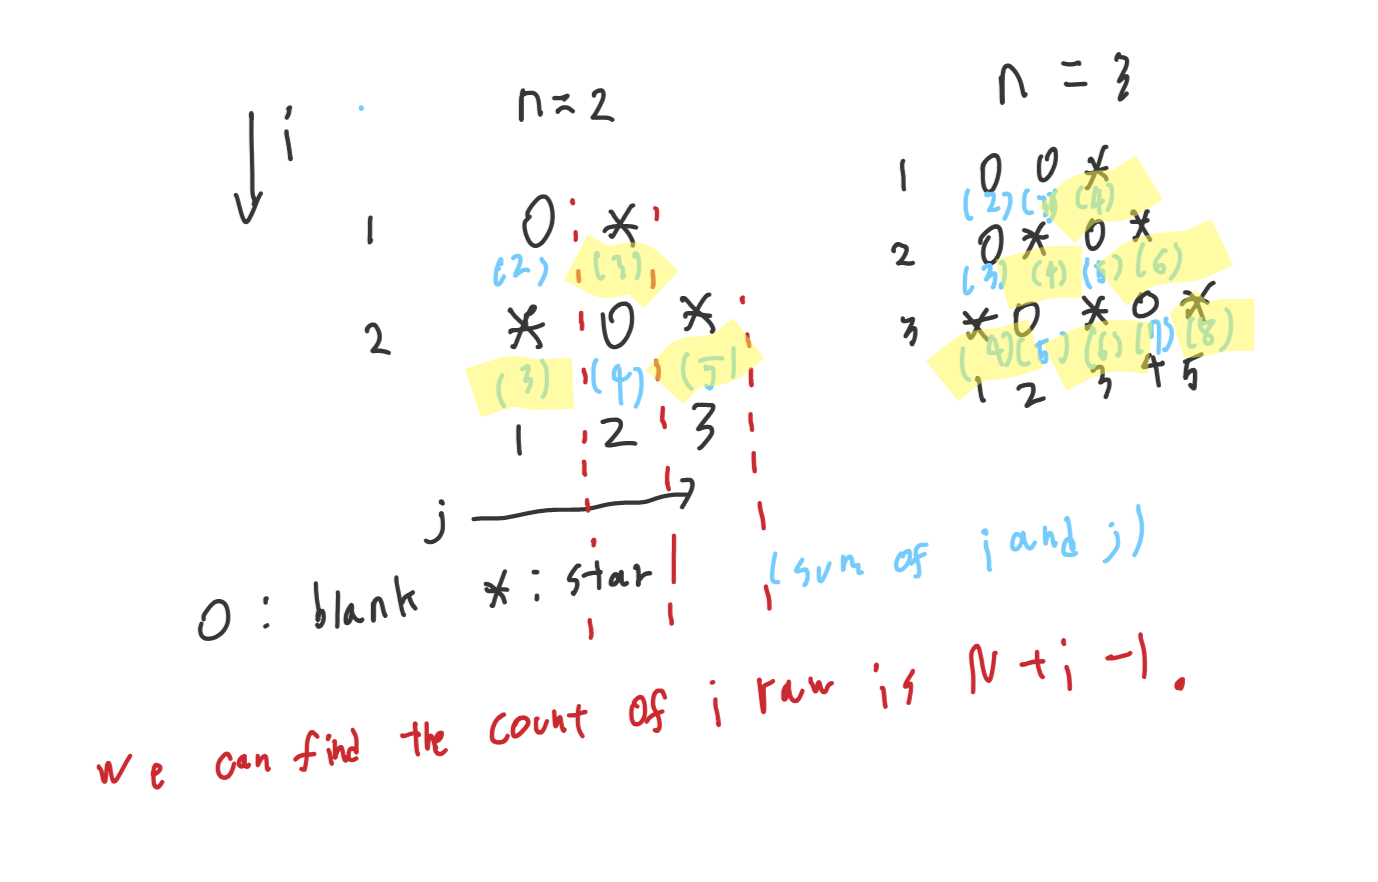 i
n = 2
1 0 *
(2) (3)
2 * 0 *
(3) (4) (5)
1 2 3
j
n = 3
1 0 0 *
(2) (3) (4)
2 0 * 0 *
(3) (4) (5) (6)
3 * 0 * 0 *
(4) (5) (6) (7) (8)
1 2 3 4 5
0 : blank * : star
(sum of i and j)
we can find the count of j raw is N + i - 1.